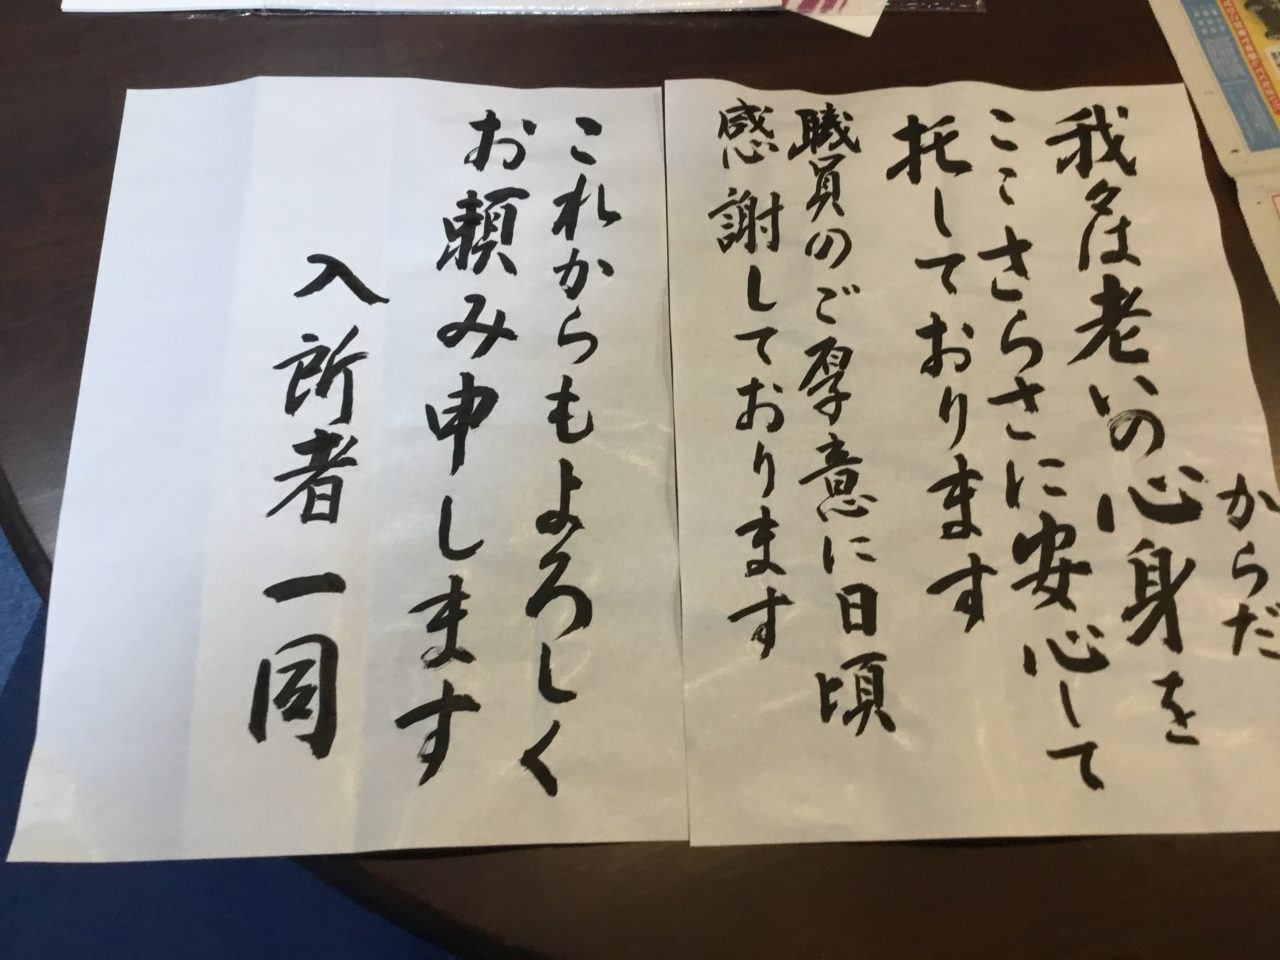 我々は老いの心身を
からだ
ここさらさに安心して
托しております
職員のご厚意に日頃
感謝しております
これからもよろしく
お頼み申します
入所者一同